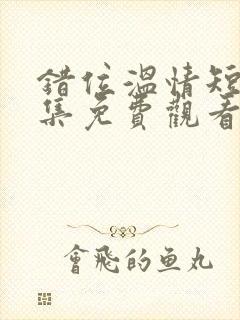 錯位溫情短
集免費觀看
會飛的鱼丸